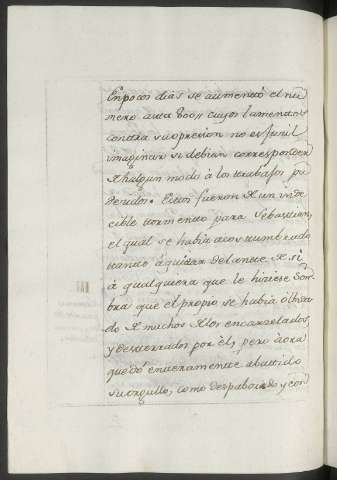 En pocos dias se aumentò el nu
mero asta 800,, cuyos lamentos
contra su opresion no es facil
imaginar si debian corresponder
de halgun modo à los trabajos pa
decidos. Estos fueron de un inde
cible tormento para Sebastian,
el qual se habia acostumbrado
tanto á quitar delante de sí
à qualquiera que le hiziese Som
bra que el propio se habia olbida
do de muchos de los encarzelados,
y desterrados por él; pero àora
quedó enteramente abatido
su orgullo, como despaborido y con